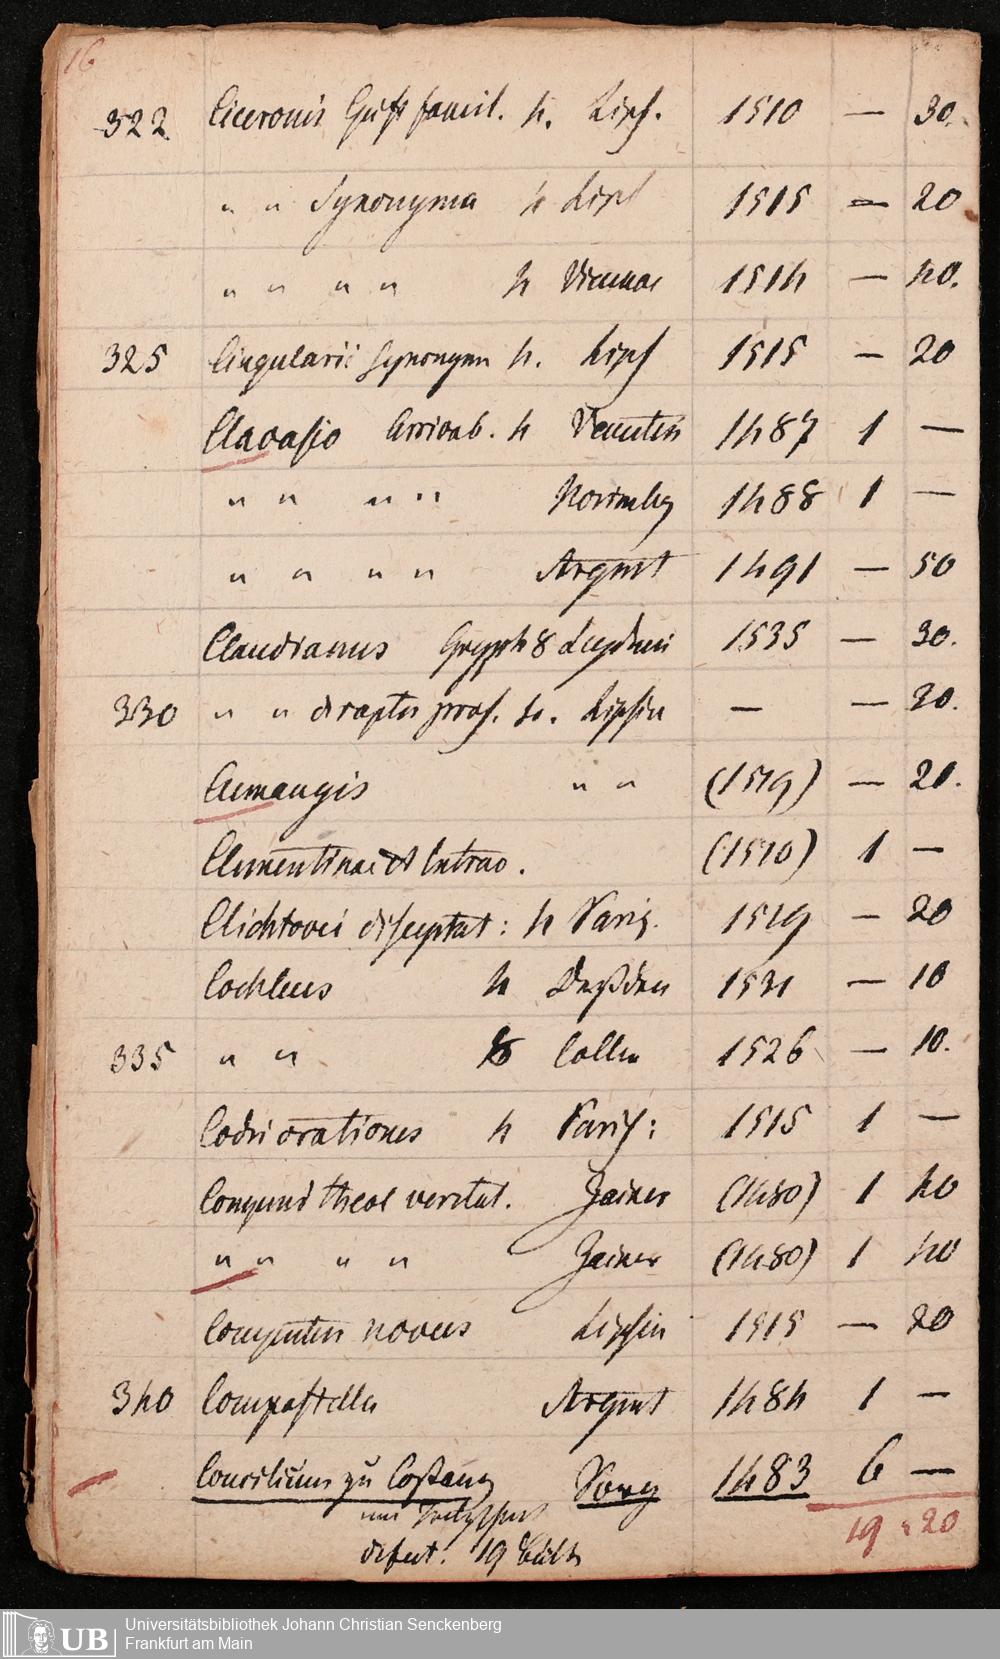 16
322 Ciceronis famil. 4. Lips. 1510 — 30.
" " Synonyma 4 Lips 1515 — 20
" " " " 4 Viennae 1514 — 40.
325 Cingularii Synonym 4. Lips 1515 — 20
Clavasio Arrivab. 4 Venetiis 1487 1 —
" " " " Norimbg 1488 1 —
" " " " Argent 1491 — 50
Claudianus Gryph 8 Lugduni 1535 — 30.
330 " " de raptu pros. Lipsiae — — 20.
Clemangis " " (1519) — 20.
Clementinae et Extrav. (1510) 1 —
Clichtovei disceptat: 4 Paris. 1519 — 20
Cochleus 4 Dreßden 1531 — 10
335 " " 8 Collen 1526 — 10.
Codri orationes 4 Paris: 1515 1 —
Compend theol veritat. Zainer (1480) 1 40
" " " " Zainer (1480) 1 40
Computus novus Lipsiae 1515 — 20
340 Compostella Argent 1484 1 —
Concilium zu Costanz Sorg 1483 6 —
19 " 20
defect. 19
Universitätsbibliothek Johann Christian Senckenberg
Frankfurt am Main
UB